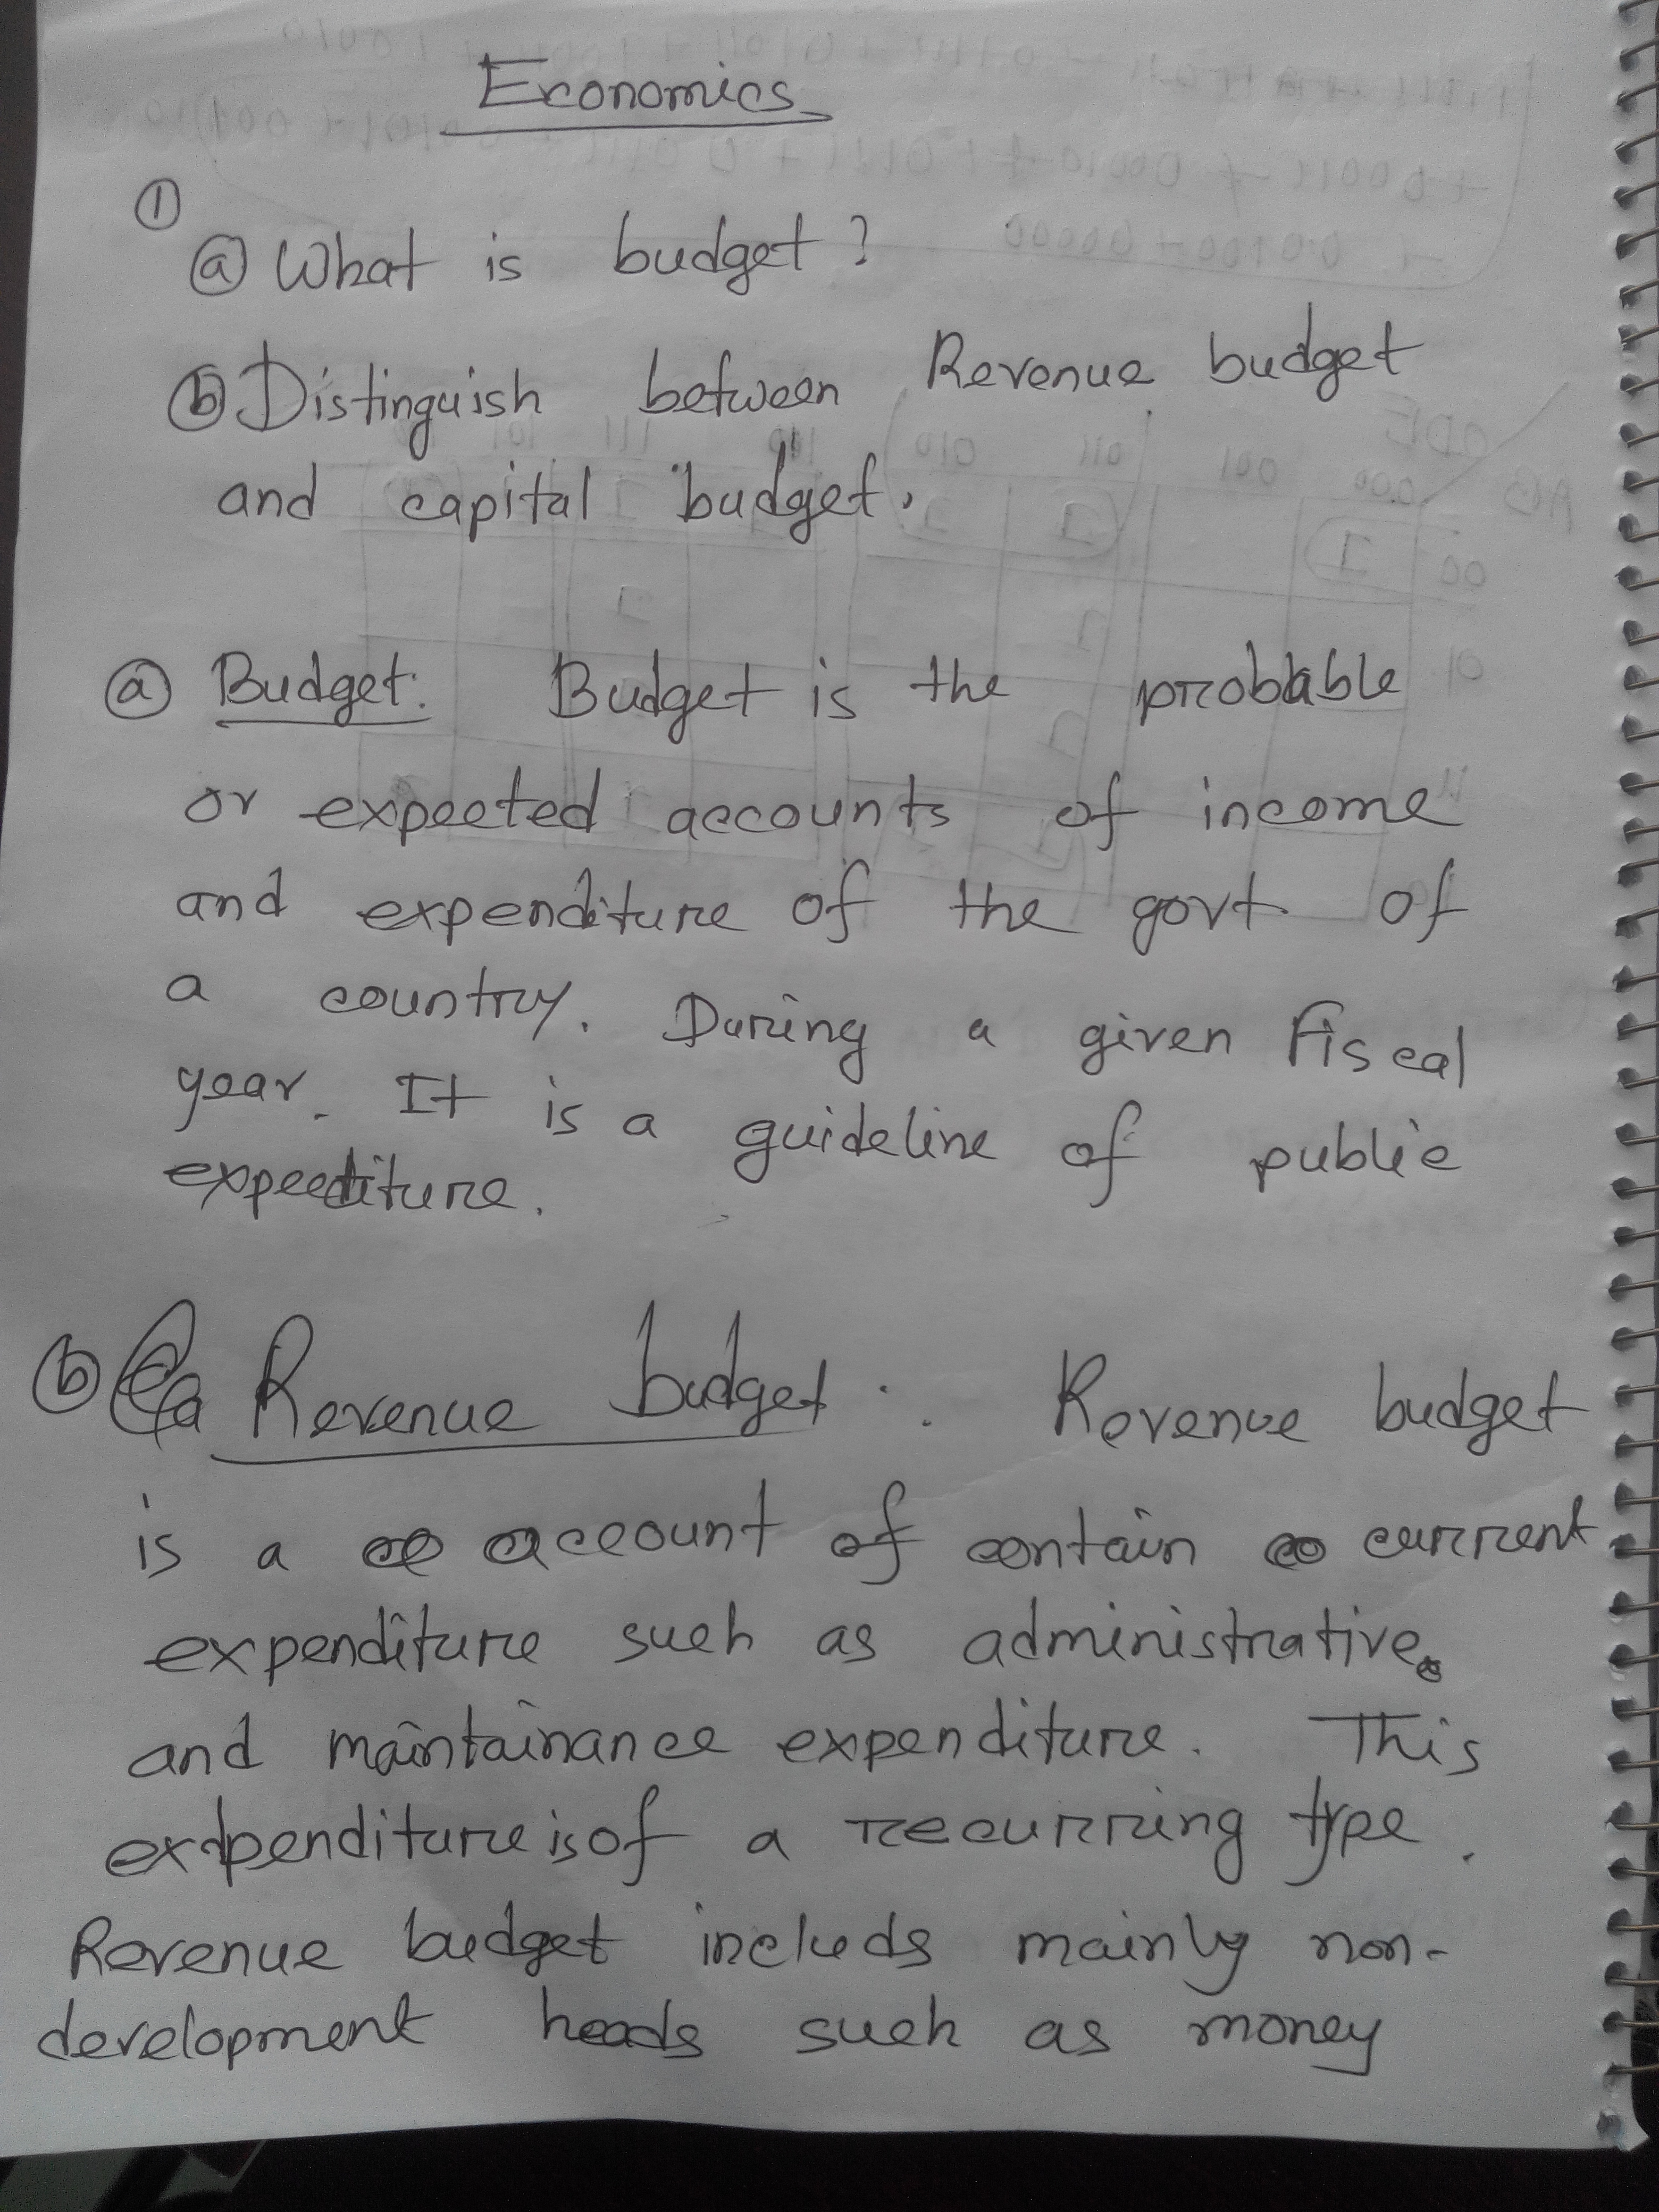 Economics
①
ⓐ What is budget?
ⓑ Distinguish between Revenue budget
and capital budget.
ⓐ Budget: Budget is the probable
or expected accounts of income
and expenditure of the govt of
a country. During a given fiscal
year. It is a guideline of public
expediture.
ⓑ Revenue budget: Revenue budget
is a account of contain current
expenditure such as administrative
and maintainance expenditure. This
expenditure is of a recurring type.
Revenue budget includs mainly non-
development heads such as money